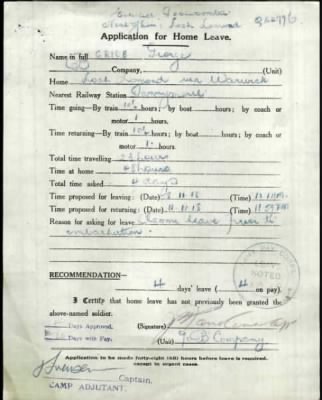 Application for Home Leave.
Name in full GRICE George
Company, (Unit)
Home Loch Lomond via Warwick
Nearest Railway Station
Time going—By train 10½ hours; by boat hours; by coach or
motor 1 hours.
Time returning—By train 10½ hours; by boat hours; by coach or
motor 1 hours.
Total time travelling 23 hours
Time at home 48 hours
Total time asked 4 days
Time proposed for leaving: (Date) 8.11.18 (Time)
Time proposed for returning: (Date) 11.18 (Time) 11.59 PM
Reason for asking leave Home leave prior to
embarkation.
RECOMMENDATION—
4 days' leave ( 4 on pay).
I Certify that home leave has not previously been granted the
above-named soldier.
Days Approved. (Signature)
Days with Pay. (Unit) Company
Application to be made forty-eight (48) hours before leave is required,
except in urgent cases.
Captain,
CAMP ADJUTANT.
NOTED